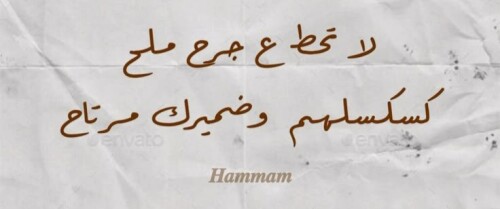 لا تحط ع جرح ملح
كسكسلهم وضميرك مرتاح
envato envato
Hammam